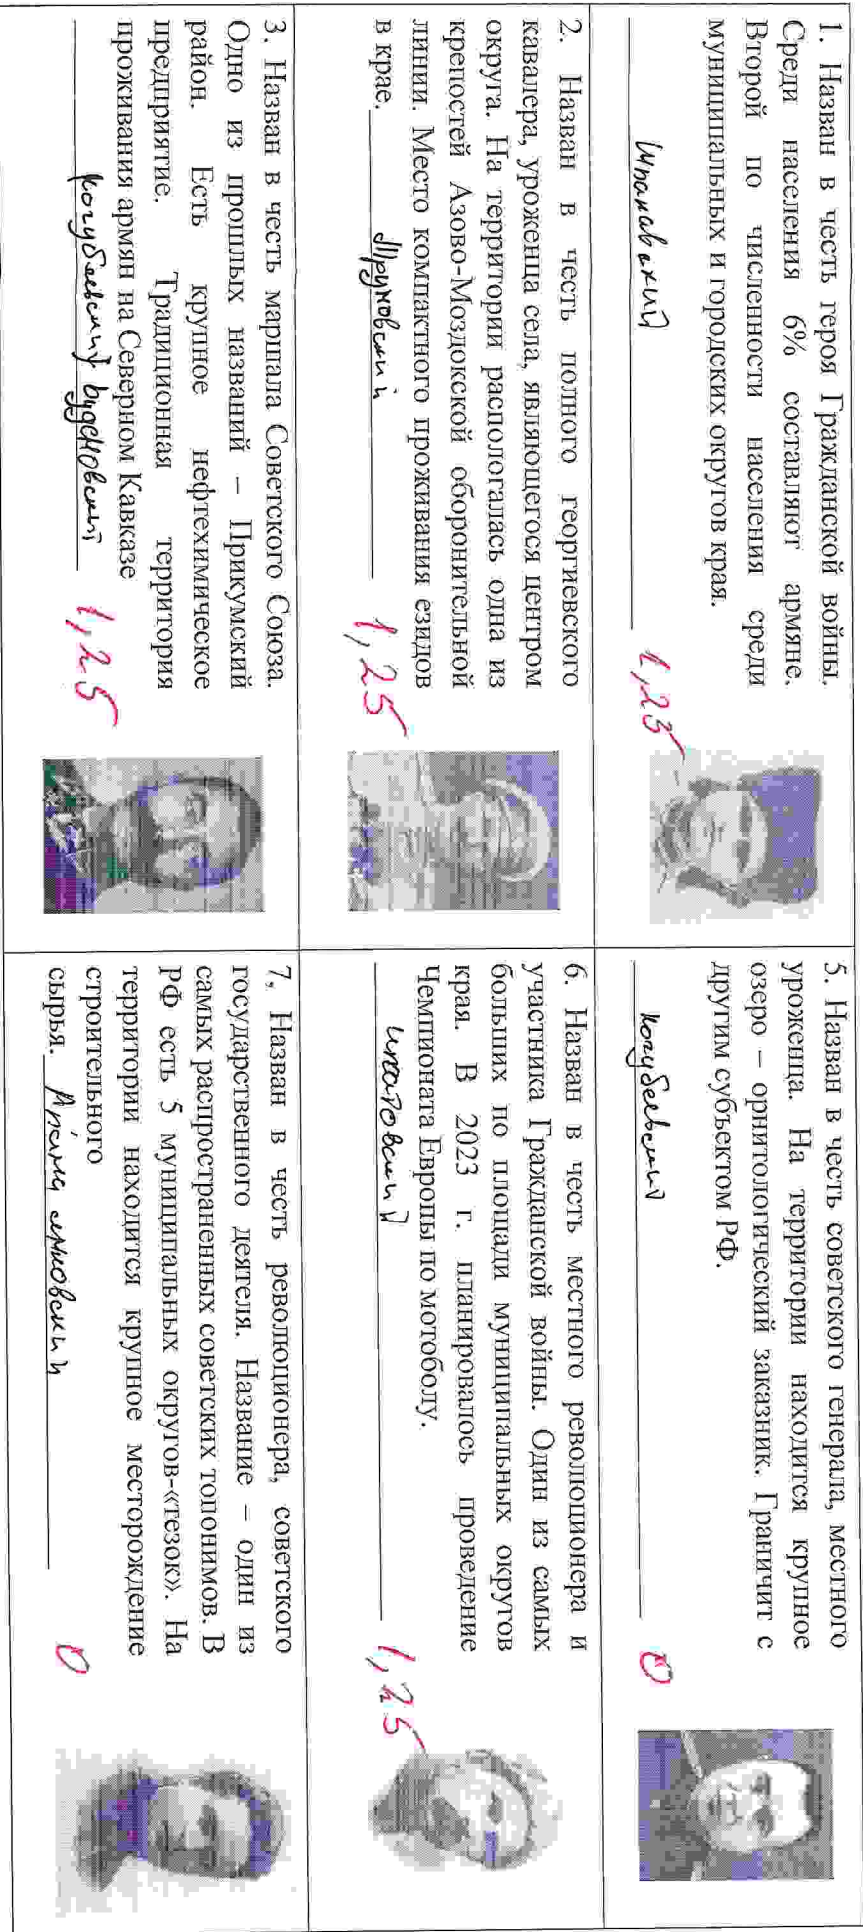 1. Назван в честь героя Гражданской войны.
Среди населения 6% составляют армяне.
Второй по численности населения среди
муниципальных и городских округов края.
Шпаковский
1,25
2. Назван в честь полного георгиевского
кавалера, уроженца села, являющегося центром
округа. На территории распологалась одна из
крепостей Азово-Моздокской оборонительной
линии. Место компактного проживания езидов
в крае. Труновский
1,25
3. Назван в честь маршала Советского Союза.
Одно из прошлых названий – Прикумский
район. Есть крупное нефтехимическое
предприятие. Традиционная территория
проживания армян на Северном Кавказе
Кочубеевский Буденовский
1,25
5. Назван в честь советского генерала, местного
уроженца. На территории находится крупное
озеро – орнитологический заказник. Граничит с
другим субъектом РФ.
Кочубеевский
0
6. Назван в честь местного революционера и
участника Гражданской войны. Один из самых
больших по площади муниципальных округов
края. В 2023 г. планировалось проведение
Чемпионата Европы по мотоболу.
ипатовский
1,25
7. Назван в честь революционера, советского
государственного деятеля. Название – один из
самых распространенных советских топонимов. В
РФ есть 5 муниципальных округов-«тезок». На
территории находится крупное месторождение
строительного
сырья.
0